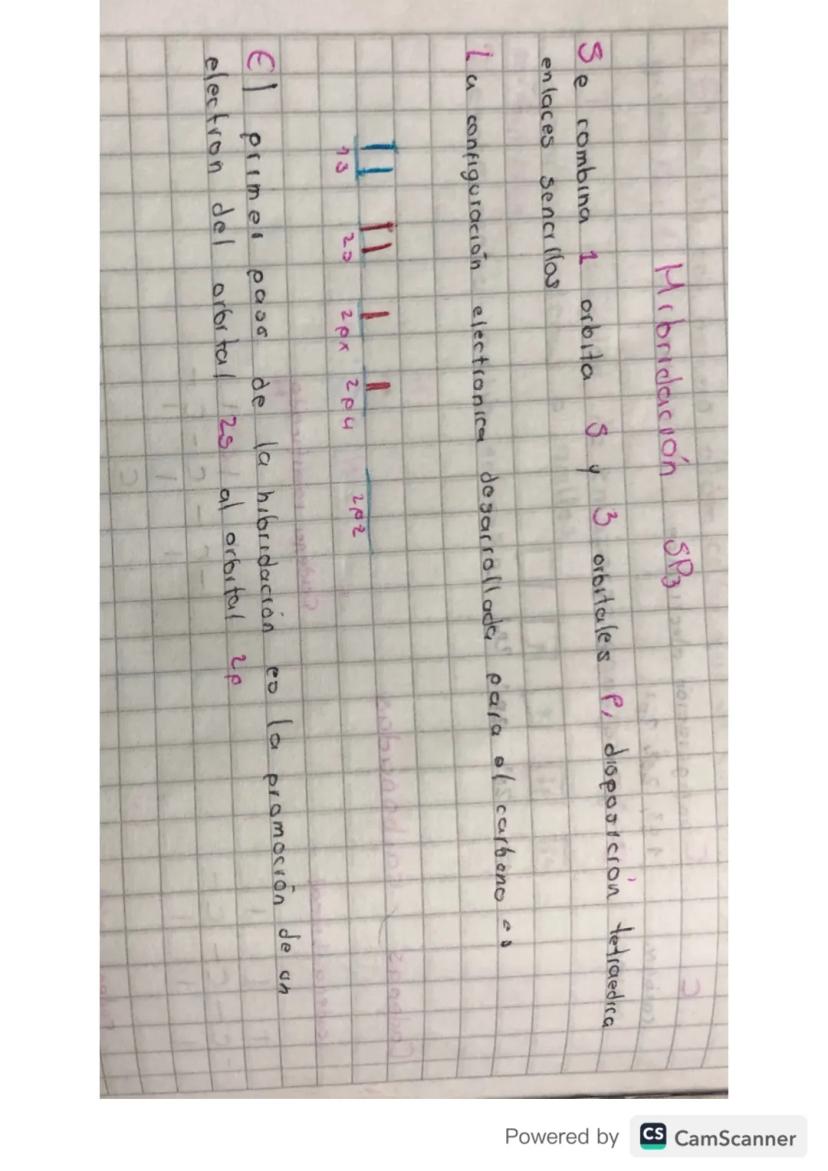 Hibridación SP3
Se combina 1 orbita S y 3 orbitales P, disposición tetraedica
enlaces sencillos
La configuración electronica desarrollada para el carbono es
1s 2s 2px 2py 2pz
El primer paso de la hibridación es la promoción de un
electron del orbital 2s al orbital 2p
Powered by CS CamScanner